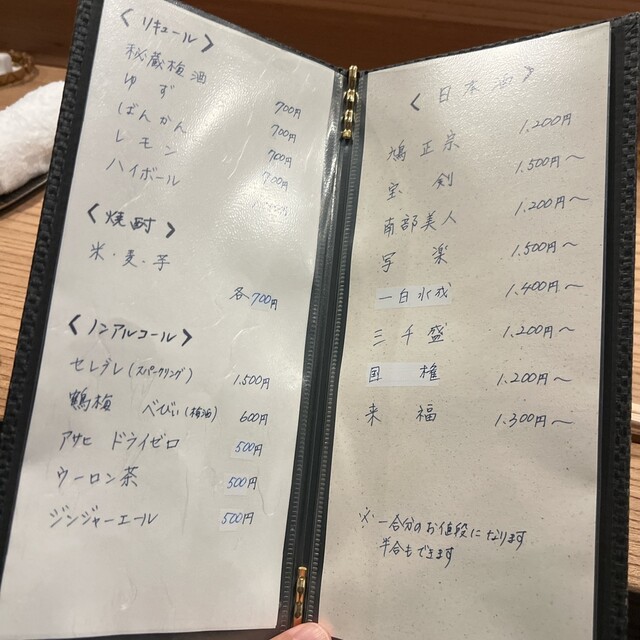 <リキュール>
秘蔵梅酒 700円
ゆず 700円
ばんかん 700円
レモン 700円
ハイボール
<焼酎>
米・麦・芋
各700円
<ノンアルコール>
セレブレ(スパークリング) 1,500円
鶴梅 べびぃ(梅酒) 600円
アサヒ ドライゼロ 500円
ウーロン茶 500円
ジンジャーエール 500円
<日本酒>
鳩正宗 1,200円
宝剣 1,500円〜
南部美人 1,200円〜
写楽 1,500円〜
一白水成 1,400円〜
三千盛 1,200円〜
国権 1,200円〜
来福 1,300円〜
※一合分のお値段になります
半合もできます